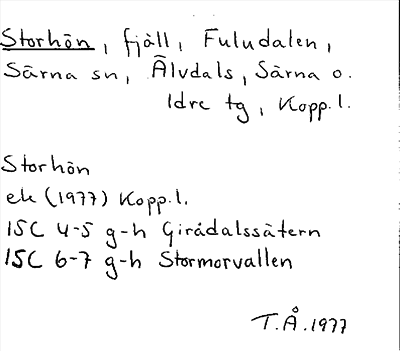 Storhön, fjäll, Fuludalen,
Särna sn, Älvdals, Särna o.
Idre tg, Kopp.l.
Storhön
ek (1977) Kopp.l.
15C 4-5 g-h Girådalssätern
15C 6-7 g-h Stormorvallen
T.Å. 1977